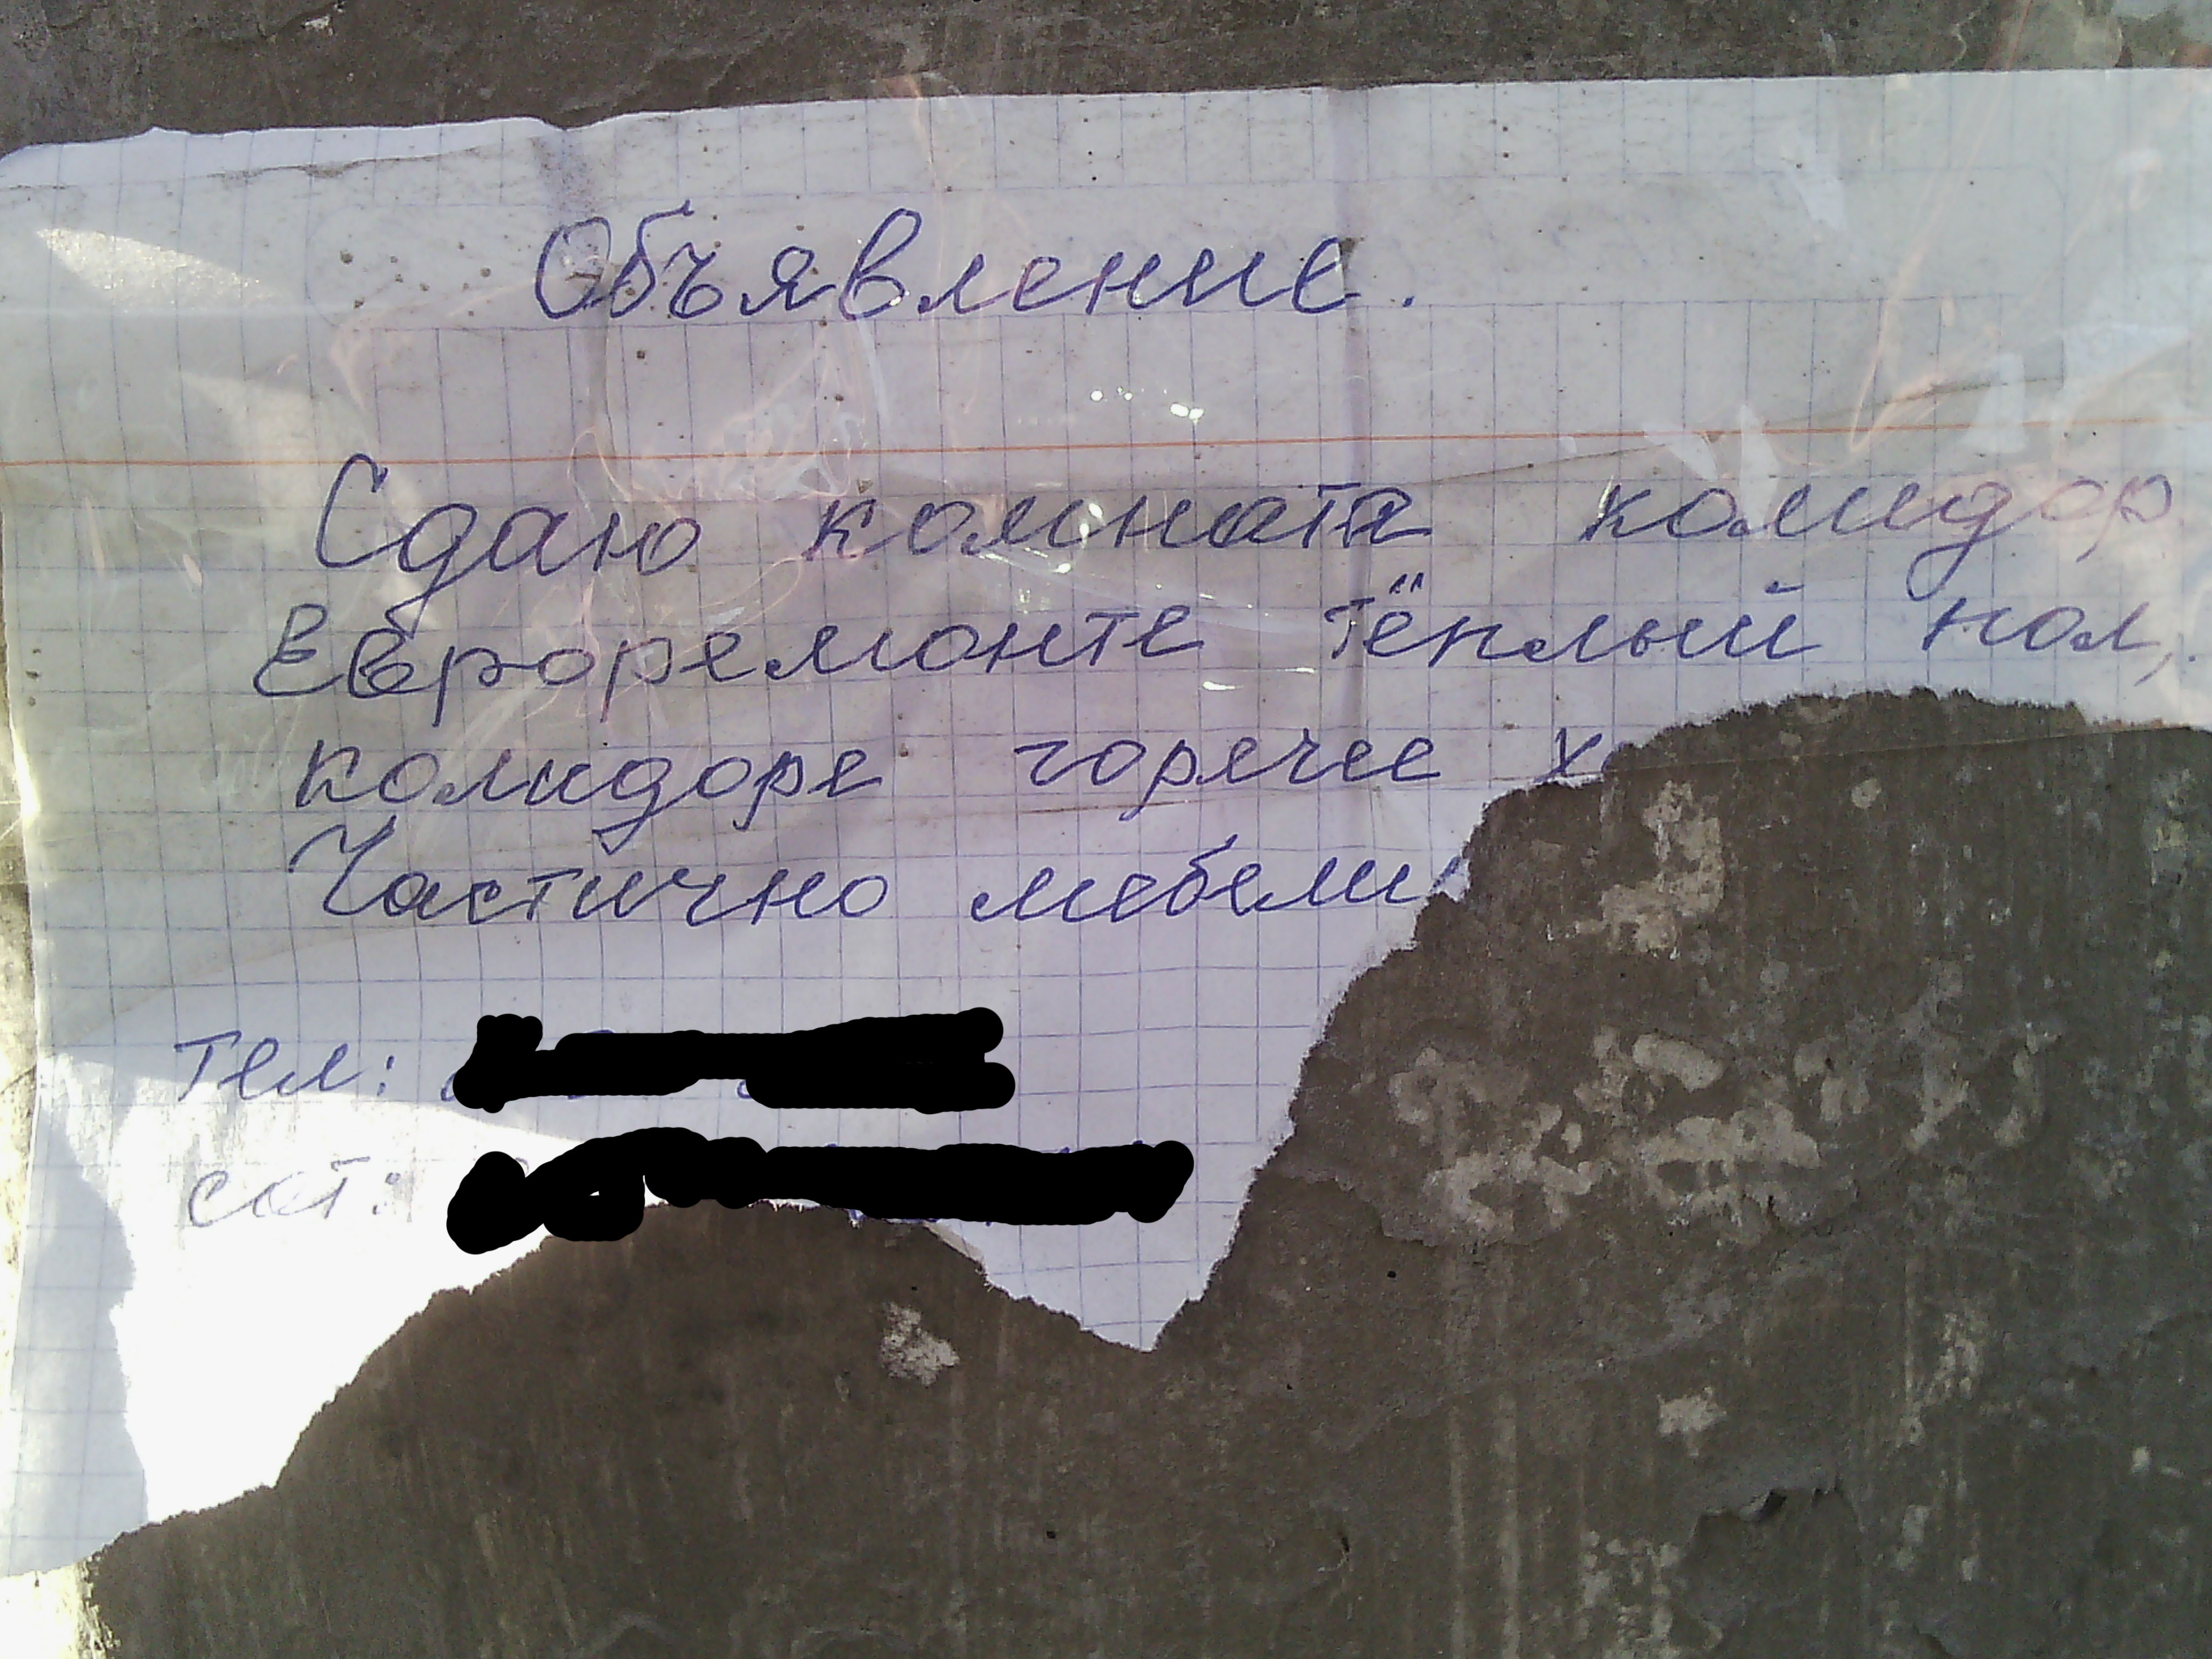 Объявление.
Сдаю комната колидор
Евроремонте тёплый пол,
колидоре горячее
Частично мебели
Тел:
сот: